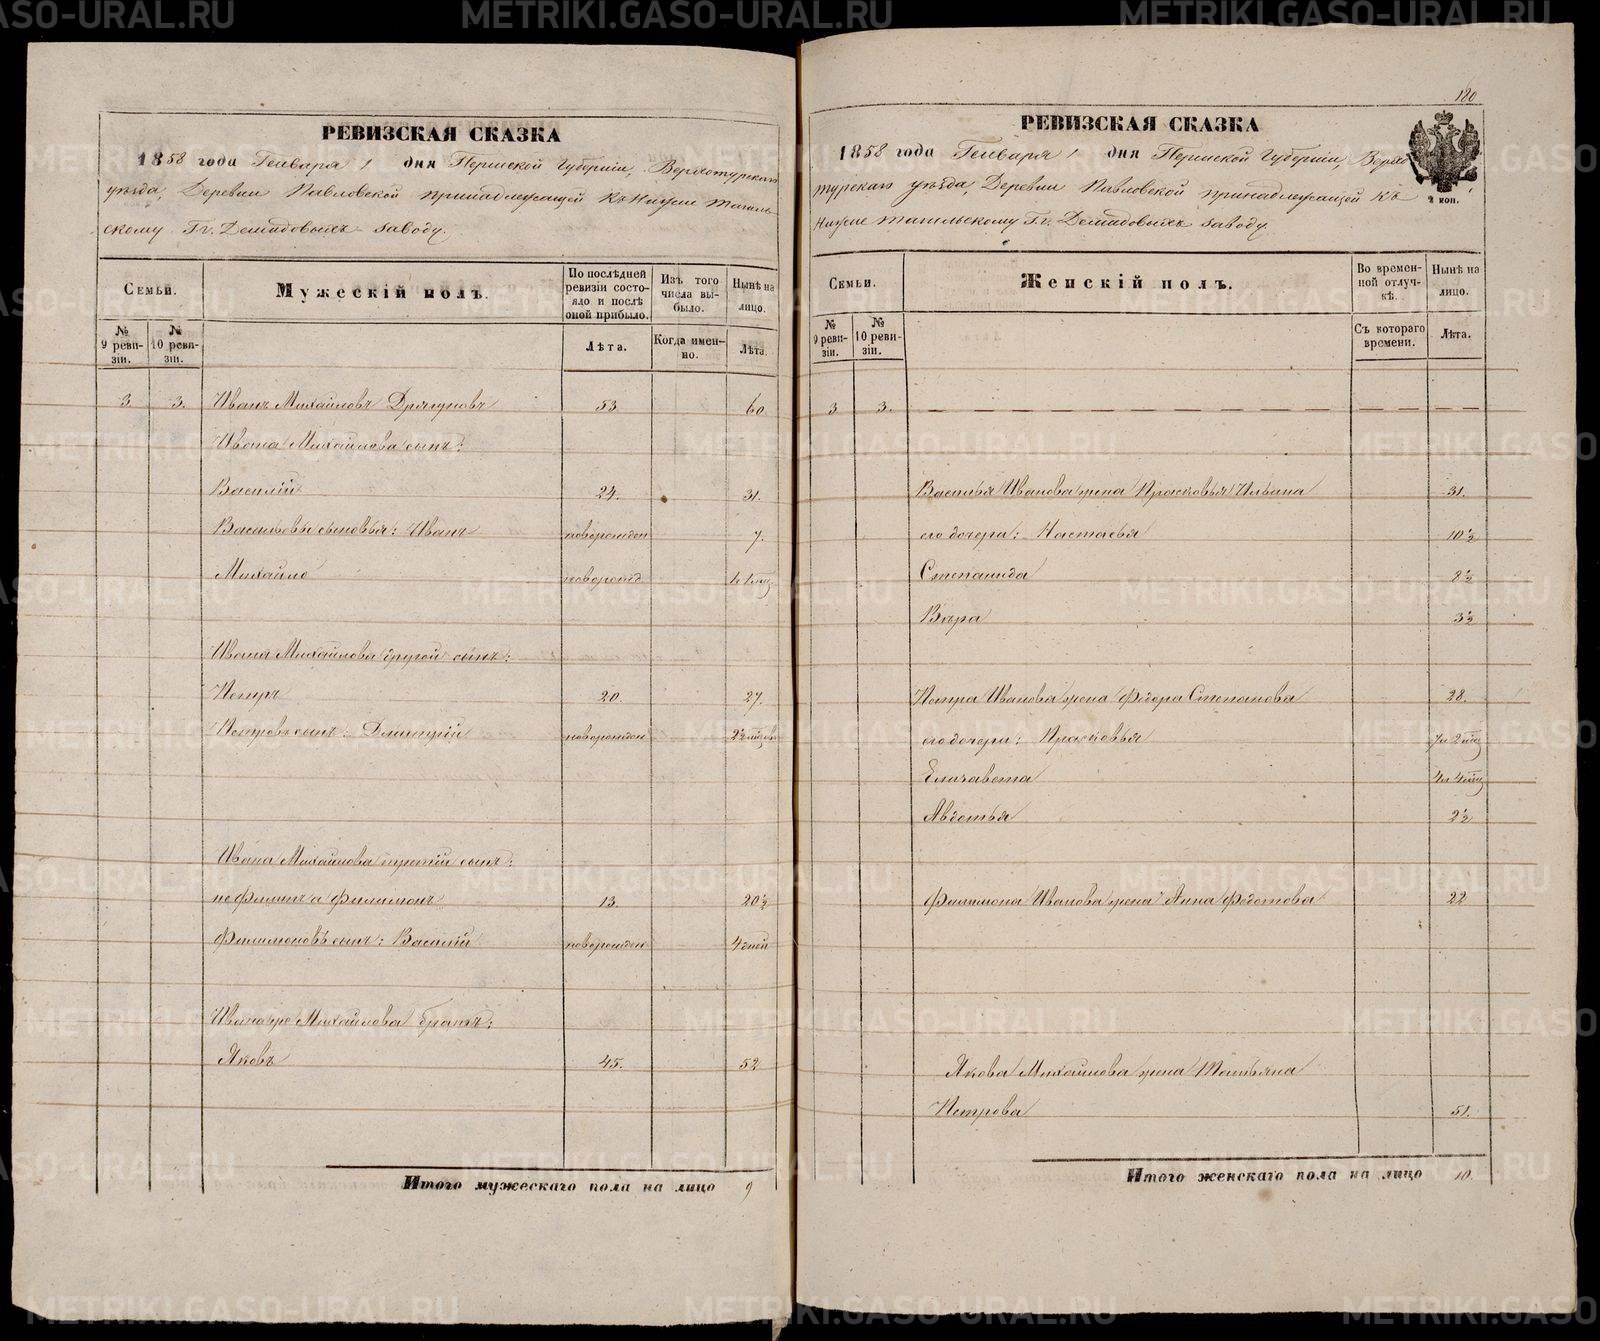 РЕВИЗСКАЯ СКАЗКА
1858 года Генваря 1 дня Пермской Губерніи, Верхотурскаго
уѣзда, Деревни Павловской принадлежащей къ Нижне Тагиль-
скому Гг. Демидовыхъ заводу.
Семьи.
Мужескій полъ.
По послѣдней ревизіи состояло и послѣ оной прибыло.
Изъ того числа выбыло.
Нынѣ на лицо.
№ 9 реви-зіи.
№ 10 реви-зіи.
Лѣта.
Когда имен-но.
Лѣта.
3 3. Иванъ Михайловъ Драгуновъ 53 60
Ивана Михайлова сынъ:
Василій 24. 31.
Васильевы сыновья: Иванъ новорожден 7.
Михайло новорожд
Ивана Михайлова другой сынъ:
Петръ 20. 27.
Петровъ сынъ: Дмитрій новорожден 2½ мѣсяца
Ивана Михайлова третій сынъ:
не Филипъ а Филимонъ 13. 20½
Филимоновъ сынъ: Василій новорожден 4 дней
Ивана же Михайлова братъ:
Яковъ 45. 52
Итого мужескаго пола на лицо 9
180
РЕВИЗСКАЯ СКАЗКА
1858 года Генваря 1 дня Пермской Губерніи, Верхо
турскаго уѣзда, Деревни Павловской принадлежащей къ
Нижне Тагильскому Гг. Демидовыхъ заводу.
2 коп.
Семьи.
Женскій полъ.
Во времен-ной отлуч-кѣ.
Нынѣ на лицо.
№ 9 реви-зіи.
№ 10 реви-зіи.
Съ котораго времени.
Лѣта.
3 3. — — — — — — — — — —
Василья Иванова жена Прасковья Ильина 31.
его дочери: Настасья 10½
Степанида 8½
Вѣра 3½
Петра Иванова жена Федора Степанова 28.
его дочери: Прасковья 7 и 2 мѣс
Елизавета 4 и 4 мѣс
Авдотья 2½
Филимона Иванова жена Анна Федотова 22
Якова Михайлова жена Татьяна
Петрова 51.
Итого женскаго пола на лицо 10.
METRIKI.GASO-URAL.RU